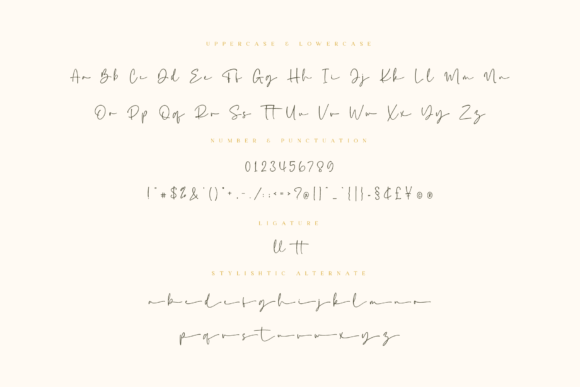 UPPERCASE & LOWERCASE
Aa Bb Cc Dd Ee Ff Gg Hh Ii Jj Kk Ll Mm Nn
Oo Pp Qq Rr Ss Tt Uu Vv Ww Xx Yy Zz
NUMBER & PUNCTUATION
0123456789
!"#$%&'()*+,-./:;<=>?@[]^_`{|}-§¢£¥©®
LIGATURE
ll tt
STYLISHTIC ALTERNATE
a b c d e f g h i j k l m n o
p q r s t u v w x y z